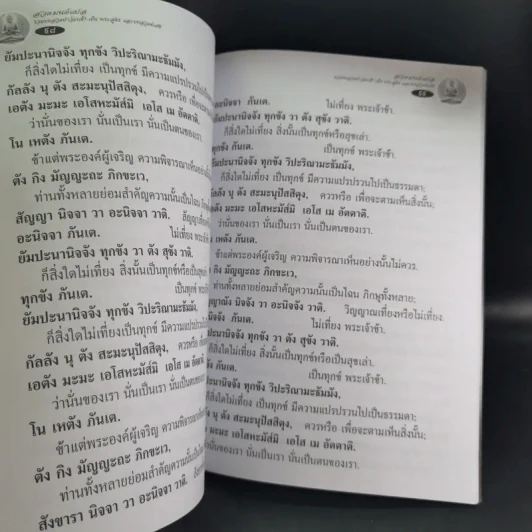 ๕๘
ยัมปะนานิจจัง ทุกขัง วิปะริณามะธัมมัง,
ก็สิ่งใดไม่เที่ยง เป็นทุกข์ มีความแปรปรวนไป
กัลลัง นุ ตัง สะมะนุปัสสิตุง, ควรหรือ เพื่อจะตาม
เอตัง มะมะ เอโสหะมัส์มิ เอโส เม อัตตาติ.
ว่านั่นของเรา นั่นเป็นเรา นั่นเป็นตนของเรา.
โน เหตัง ภันเต.
ข้าแต่พระองค์ผู้เจริญ ความพิจารณาเห็นอย่างนั้น
ตัง กิง มัญญะถะ ภิกขะเว,
ท่านทั้งหลายย่อมสำคัญความนั้นเป็นไฉน
สัญญา นิจจา วา อะนิจจา วาติ. สัญญาเที่ยง
อะนิจจา ภันเต. ไม่เที่ยง พระเจ้า
ยัมปะนานิจจัง ทุกขัง วา ตัง สุขัง วาติ.
ก็สิ่งใดไม่เที่ยง สิ่งนั้นเป็นทุกข์หรือเป็นสุข
ทุกขัง ภันเต. เป็นทุกข์ พระ
ยัมปะนานิจจัง ทุกขัง วิปะริณามะธัมมัง,
ก็สิ่งใดไม่เที่ยง เป็นทุกข์ มีความแปรปรวน
กัลลัง นุ ตัง สะมะนุปัสสิตุง, ควรหรือ
เอตัง มะมะ เอโสหะมัส์มิ เอโส เม อัตตาติ.
ว่านั่นของเรา นั่นเป็นเรา นั่นเป็นตนของเรา.
โน เหตัง ภันเต.
ข้าแต่พระองค์ผู้เจริญ ความพิจารณาเห็น
ตัง กิง มัญญะถะ ภิกขะเว,
ท่านทั้งหลายย่อมสำคัญความนั้นเป็น
สังขารา นิจจา วา อะนิจจา วาติ.
อะนิจจา ภันเต. ไม่เที่ยง พระเจ้าข้า.
ปะนานิจจัง ทุกขัง วา ตัง สุขัง วาติ.
ก็สิ่งใดไม่เที่ยง สิ่งนั้นเป็นทุกข์หรือสุขเล่า.
ภันเต. เป็นทุกข์ พระเจ้าข้า.
ปะนานิจจัง ทุกขัง วิปะริณามะธัมมัง,
ก็สิ่งใดไม่เที่ยง เป็นทุกข์ มีความแปรปรวนไปเป็นธรรมดา;
นุ ตัง สะมะนุปัสสิตุง, ควรหรือ เพื่อจะตามเห็นสิ่งนั้น;
มะมะ เอโสหะมัส์มิ เอโส เม อัตตาติ.
ว่านั่นของเรา นั่นเป็นเรา นั่นเป็นตนของเรา.
เหตัง ภันเต.
ข้าแต่พระองค์ผู้เจริญ ความพิจารณาเห็นอย่างนั้นไม่ควร.
กิง มัญญะถะ ภิกขะเว,
ท่านทั้งหลายย่อมสำคัญความนั้นเป็นไฉน ภิกษุทั้งหลาย;
นิจจัง วา อะนิจจัง วาติ. วิญญาณเที่ยงหรือไม่เที่ยง.
ภันเต. ไม่เที่ยง พระเจ้าข้า.
ปะนานิจจัง ทุกขัง วา ตัง สุขัง วาติ.
ก็สิ่งใดไม่เที่ยง สิ่งนั้นเป็นทุกข์หรือเป็นสุขเล่า.
ภันเต. เป็นทุกข์ พระเจ้าข้า.
ปะนานิจจัง ทุกขัง วิปะริณามะธัมมัง,
ก็สิ่งใดไม่เที่ยง เป็นทุกข์ มีความแปรปรวนไปเป็นธรรมดา;
นุ ตัง สะมะนุปัสสิตุง, ควรหรือ เพื่อจะตามเห็นสิ่งนั้น;
มะมะ เอโสหะมัส์มิ เอโส เม อัตตาติ.
ว่านั่นของเรา นั่นเป็นเรา นั่นเป็นตนของเรา.